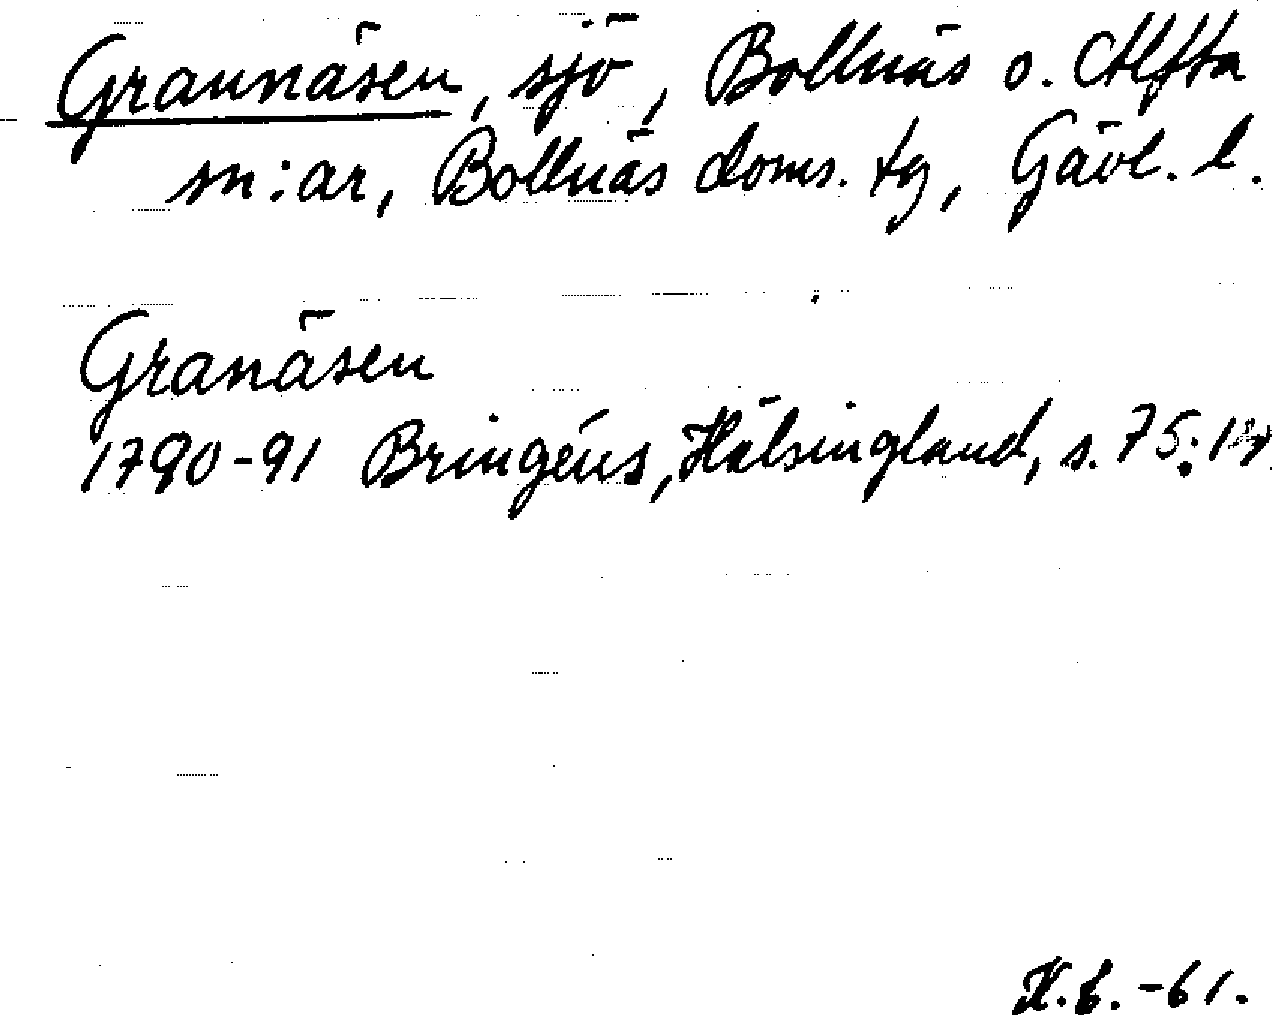 Grannäsen, sjö, Bollnäs o. Alfta
sn:ar, Bollnäs doms. tg, Gävl. l.
Granäsen
1790-91 Bringéus, Hälsingland, s. 75:
-61.